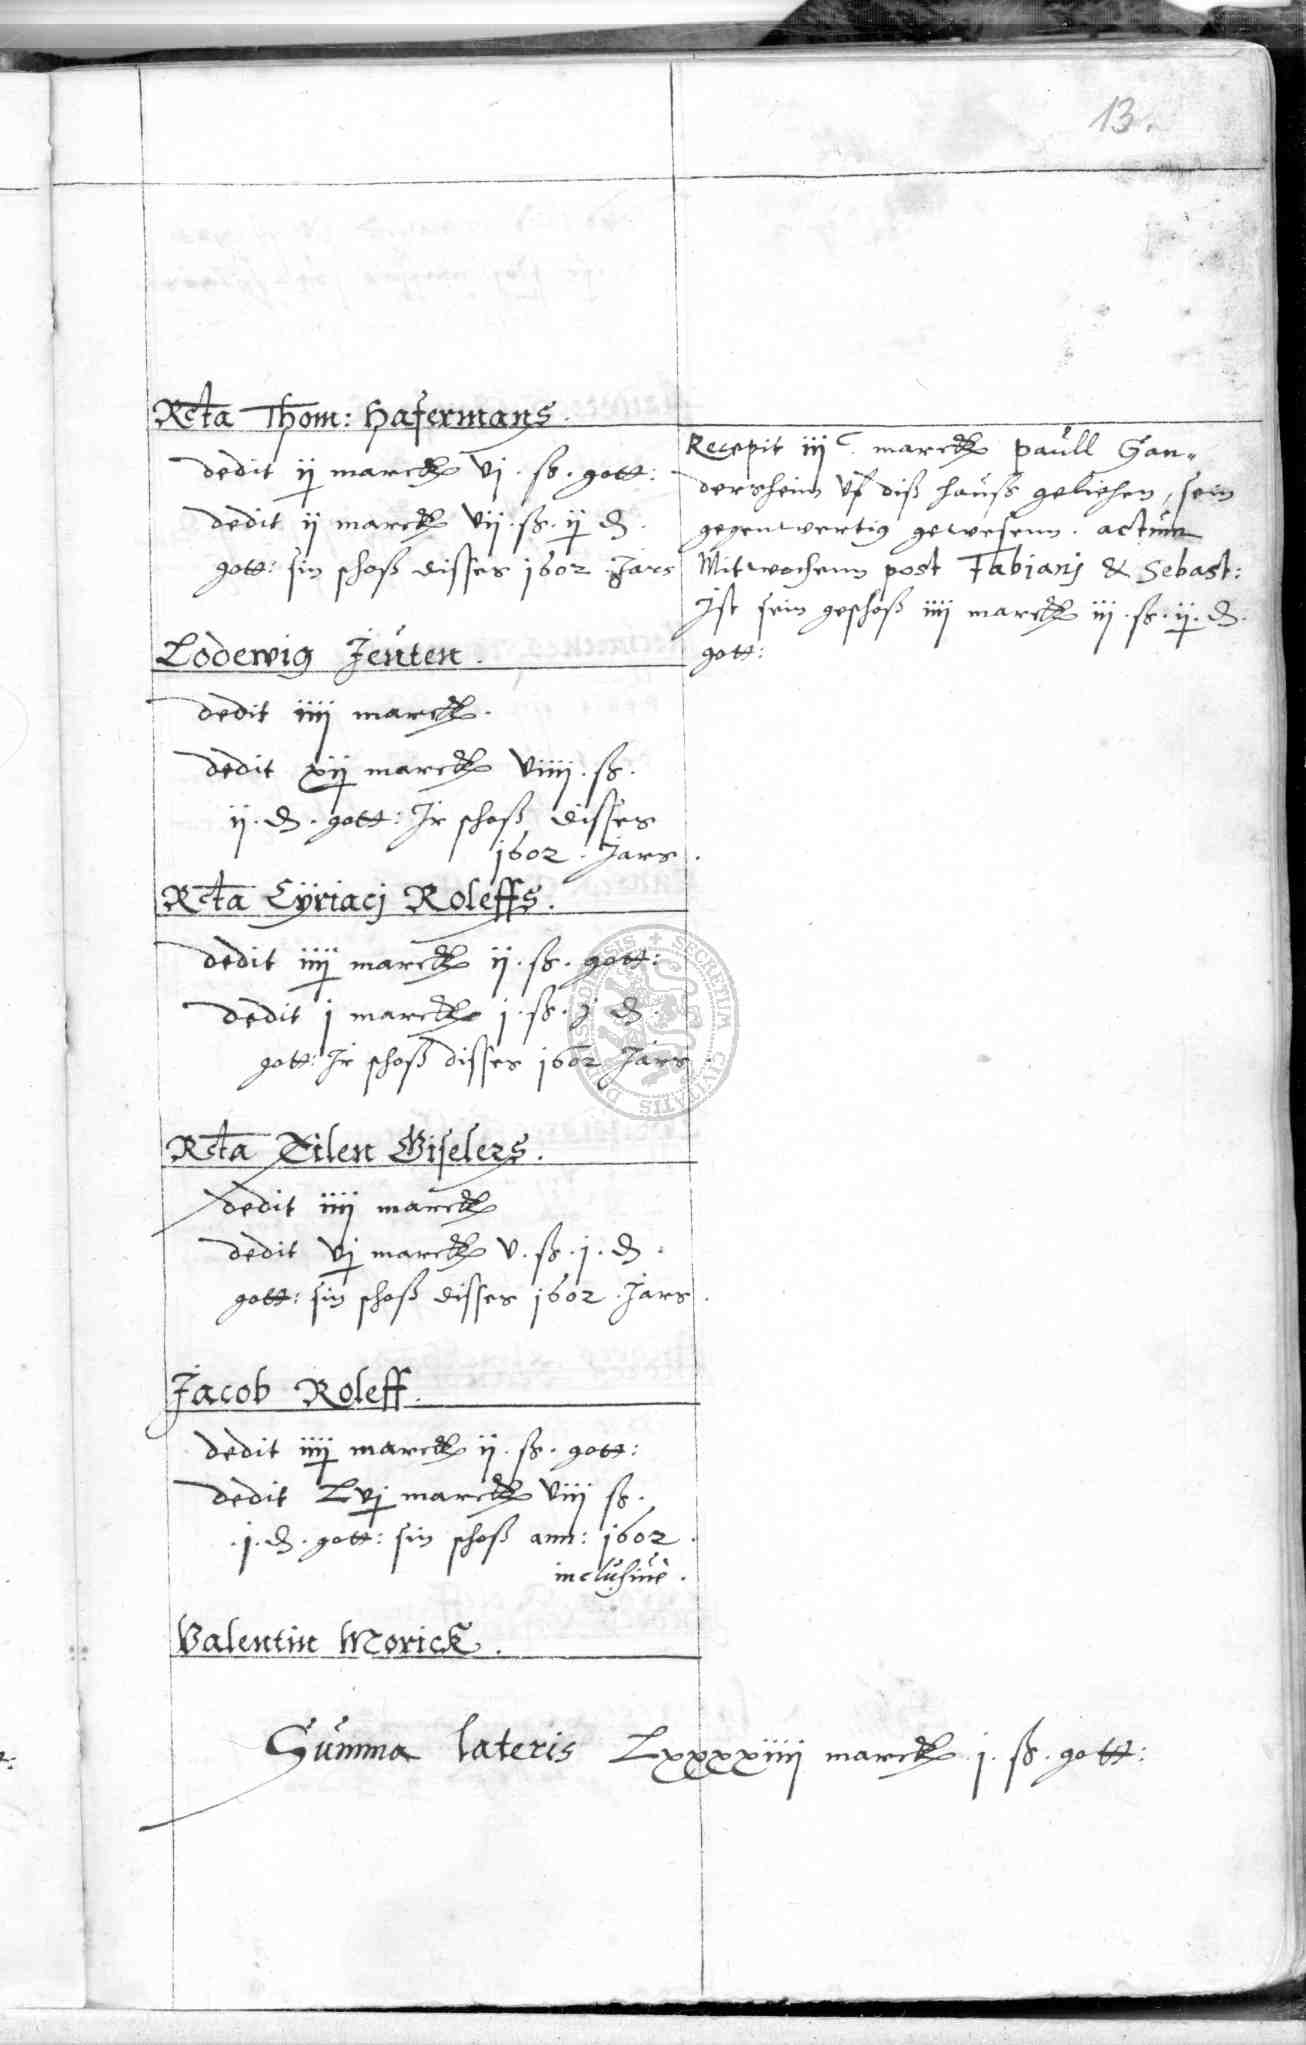 13.
Rcta Thom: Hafermans.
dedit ij marck vj. ß. gott:
dedit ij marck vij. ß. ij ₰.
gott: sin schoß disses 1602 Jars
Recepit iijᶜ. marck paull Gan„
dersheim vf diß hauß geliehen, sein
gegenwertig gewesenn. actum
Mitwochenn post Fabianj & Sebast:
Ist sein geschoß iiij marck iij. ß. ij. ₰.
gott:
Lodewig Jeuten.
dedit iiij marck.
dedit xij marck viiij. ß.
ij. ₰. gott: Ir schoß disses
1602. Jars.
Rcta Cÿriacj Roleffs.
dedit iiij marck ij. ß. gott:
dedit j marck j. ß. j ₰.
gott: Ir schoß disses 1602 Jars.
SECRETUM CIVITATIS
Rcta Tilen Giselers.
dedit iiij marck
dedit vj marck v. ß. j. ₰.
gott: sin schoß disses 1602. Jars.
Jacob Roleff.
dedit iiij marck ij. ß. gott:
dedit Lvj marck viij ß.
.j. ₰. gott: sin schoß ann: 1602.
inclusiue.
Valentin Morick.
Summa lateris Lxxxxiiij marck j. ß. gott: